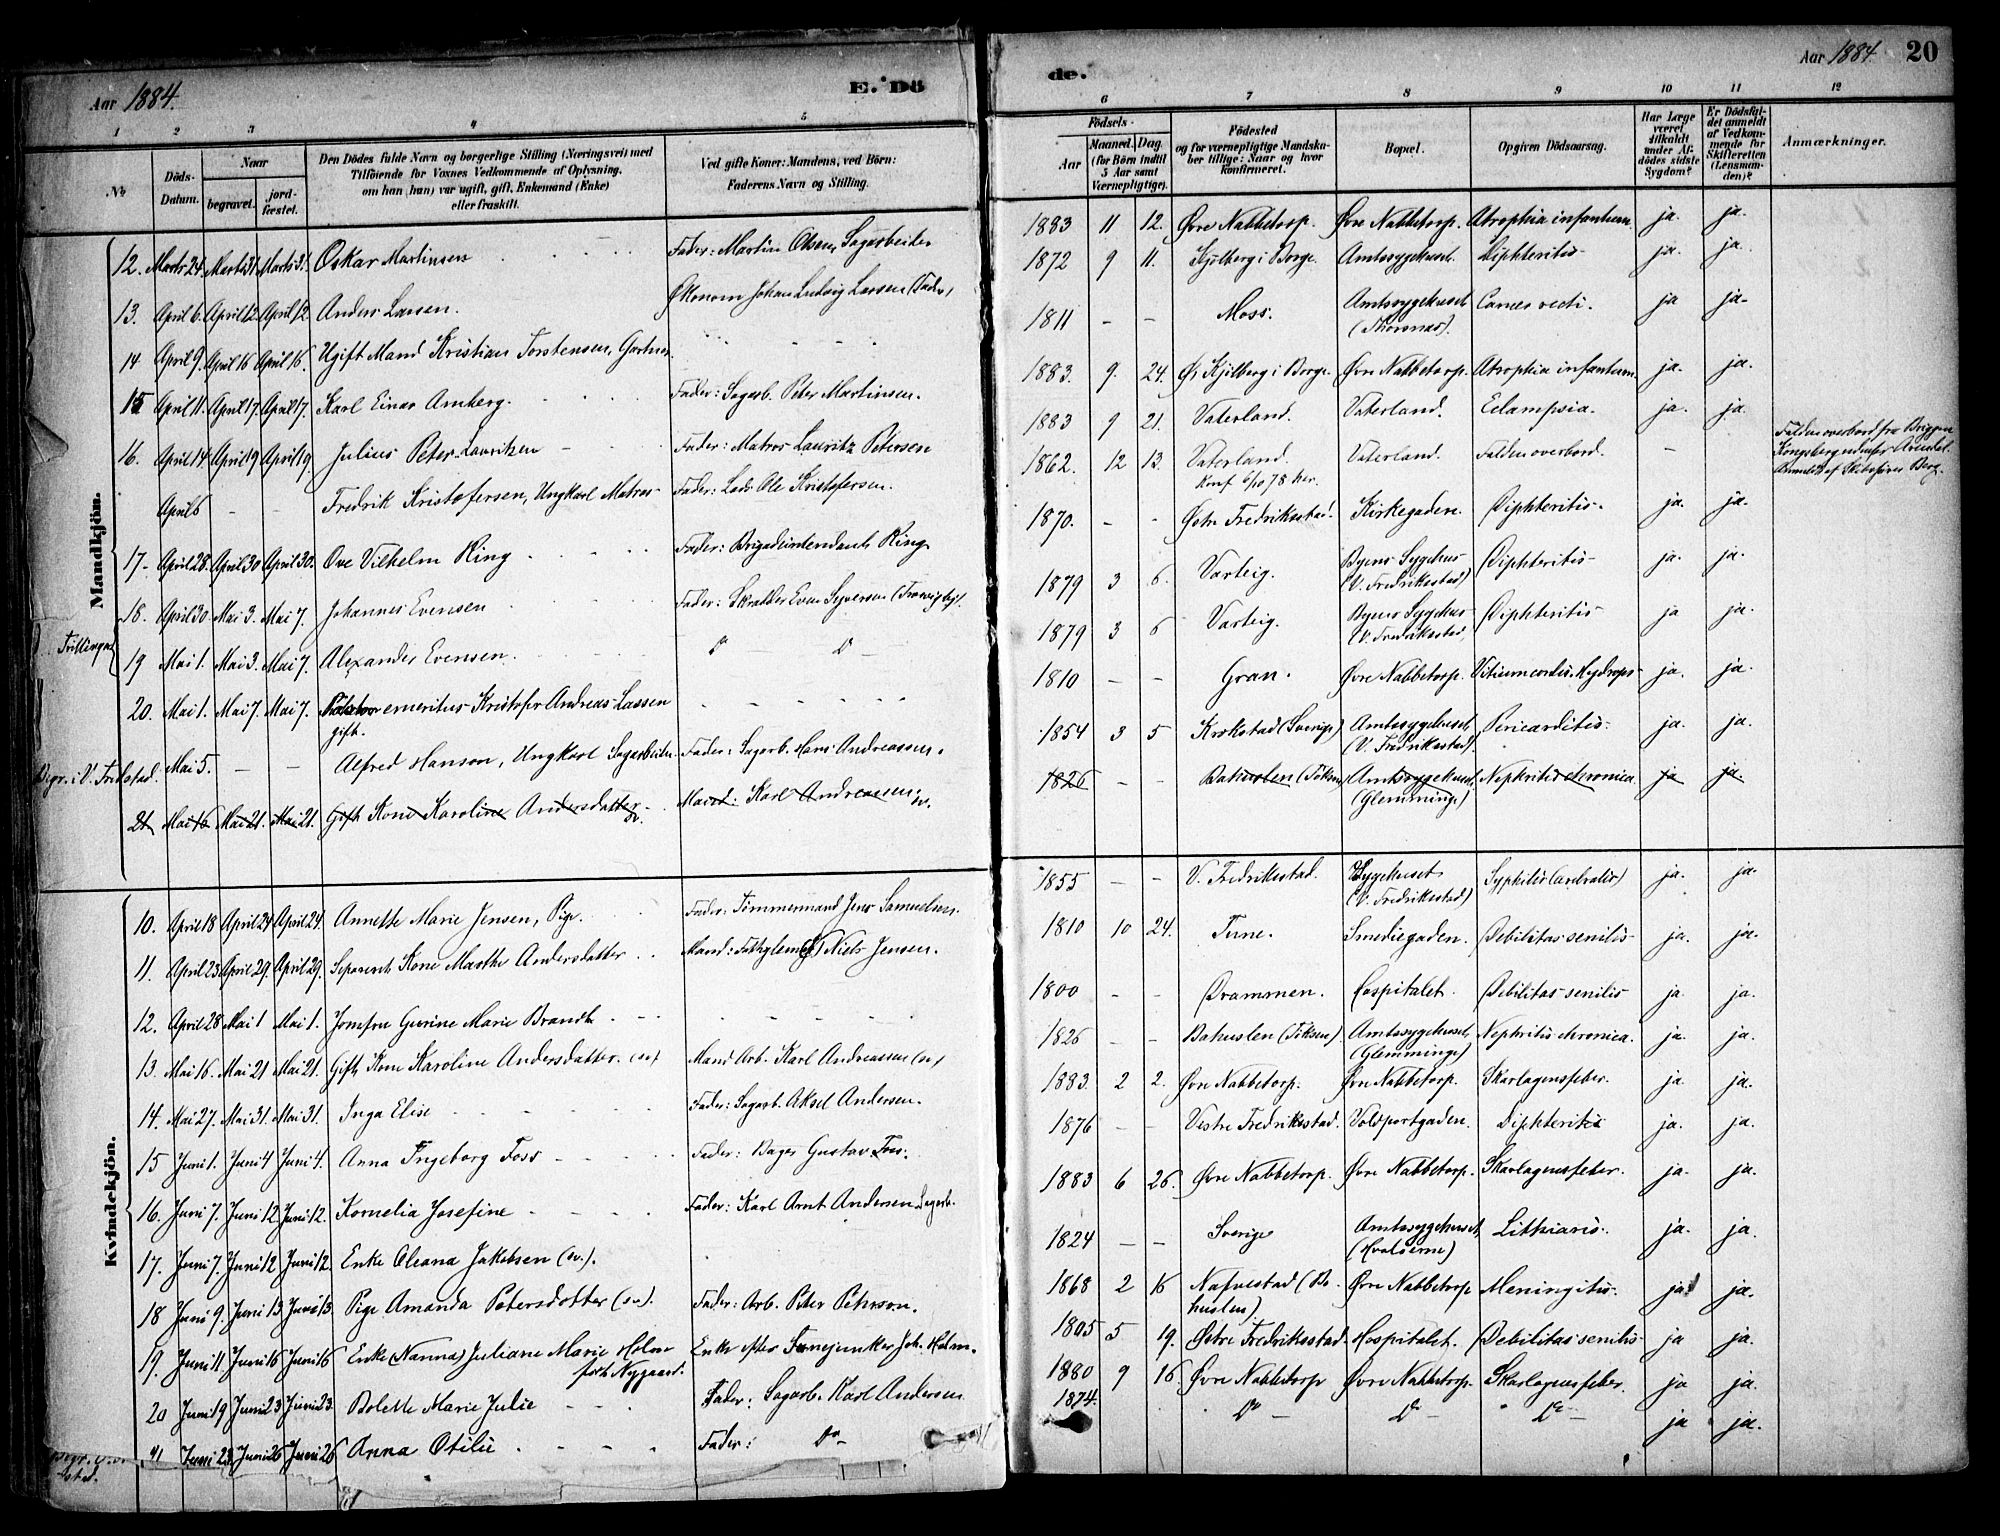 Aar 1884.
E. Dö
de.
Aar 1884. 20
1 2 3 4 5 6 7 8 9 10 11 12
No
Döds-Datum.
Naar
begravet.
jord-fæstet.
Den Dödes fulde Navn og borgerlige Stilling (Næringsvei) med
Tilföiende for Voxnes Vedkommende af Oplysning,
om han (hun) var ugift, gift, Enkemand (Enke)
eller fraskilt.
Ved gifte Koner: Mandens, ved Börn:
Faderens Navn og Stilling.
Födsels-
Aar
Maaned. Dag.
(for Börn indtil
5 Aar samt
Værnepligtige).
Födested
og for værnepligtige Mandska-
ber tillige: Naar og hvor
konfirmeret.
Bopæl.
Opgiven Dödsaarsag.
Har Læge
været
tilkaldt
under Af-
dödes sidste
Sygdom?
Er Dödsfal-
det anmeldt
af Vedkom-
mende for
Skifteretten
(Lensman-
den)?
Anmærkninger.
Mandkjön.
12. Marts 24. Marts 31. Marts 31. Oskar Martinsen Fader: Martin Olsen, Sagarbeider 1883 11 12. Øvre Nabbetorp. Øvre Nabbetorp. Atrophia infantum. ja. ja.
13. April 6. April 12. April 12. Anders Larsen. Økonom Johan Ludvig Larsen (Fader) 1872 9 11. Kjølberg i Borge. Amtssygehuset. Diphteritis ja. ja
14 April 9. April 16 April 16. Ugift Mand Kristian Torstensen, Gartner. 1811 – – Moss. Amtssygehuset (Thorsnæs). Cancer recti. ja ja
15 April 11. April 17. April 17. Karl Einar Amberg. Fader: Sagarb. Peter Martinsen. 1883. 9. 24. Ø. Kjølberg i Borge. Øvre Nabbetorp. Atrophia infantum. ja. ja.
16. April 14 April 19 April 19. Julius Peter Lauritzen Fader: Matros Lauritz Petersen 1883 9 21. Vaterland. Vaterland. Eclampsia. ja. ja.
April 6 – – Fredrik Kristofersen, Ungkarl Matros Fader: Lods Ole Kristofersen. 1862. 12 13. Vaterland. Konf 6/10 78 her. Vaterland. Falden overbord. –
Falden overbord fra Briggen
Kongsberg udenfor Arendal.
Anmeldt af Skibsfører Berg.
17 April 28. April 30 April 30. Ove Vilhelm Ring Fader: Brigadeintendant Ring 1870. – – Østre Fredriksstad. Kirkegaden. Diphteritis ja. ja.
18. April 30. Mai 3. Mai 7. Johannes Evensen Fader: Skrædder Even Syversen 1879 3 6. Varteig. Byens Sygehus (V. Fredriksstad) Diphteritis ja. ja.
Trillinger
19 Mai 1. Mai 3. Mai 7. Alexander Evensen. Do Do 1879 3 6 Varteig. Byens Sygehus (V. Fredriksstad. Diphteritis ja ja.
20. Mai 1. Mai 7. Mai 7. Pastor emeritus Kristofer Andreas Lassen gift. 1810 – – Gran. Øvre Nabbetorp. Vitium cordis. Hydrops ja. ja.
Begr. i V. Fredstad. Mai 5. – – Alfred Hanson, Ungkarl Sagarbeider. Fader: Sagarb. Hans Andreassen. 1854 3 5 Krokstad (Sverige) Amtssygehuset, (V. Fredriksstad). Pericarditis ja. ja.
21 Mai 16 Mai 21. Mai 21. Gift Kone Karoline Andersdatter sv. Mand: Karl Andreassen sv. 1826 – – Bahuslen Amtssygehuset, (Glemminge) Nephritis chronica ja ja.
Kvindekjön.
10. April 18 April 24 April 24. Annette Marie Jensen, Pige. Fader: Tömmermand Jens Samuelsen. 1855 – – V. Fredriksstad. Sygehuset (V. Fredriksstad) Syphilis ja. ja.
11. April 23. April 29. April 29. Separeret Kone Marthe Andersdatter Mand: Niels Jensen. 1810 10 24. Tune. Smediegaden. Debilitas senilis ja. ja.
12. April 28 Mai 1 Mai 1. Jomfru Gurine Marie Brandt 1800 – – Drammen. Hospitalet. Debilitas senilis ja. ja.
13. Mai 16. Mai 21 Mai 21. Gift Kone Karoline Andersdatter. (sv) Mand Arb. Karl Andreassen (sv) 1826 – – Bahuslen Amtssygehuset, (Glemminge) Nephritis chronica. ja. ja.
14. Mai 27. Mai 31. Mai 31. Inga Elise Fader: Sagarb. Aksel Andersen. 1883. 2 2. Øvre Nabbetorp. Øvre Nabbetorp. Skarlagensfeber. ja ja.
15 Juni 1. Juni 4 Juni 4. Anna Ingeborg Foss Fader: Bager Gustav Foss. 1876 – – Vestre Fredriksstad. Voldportgaden. Diphteritis ja. ja.
16. Juni 7. Juni 12 Juni 12. Kornelia Josefine Fader: Karl Arnt Andersen Sagarb. 1883 6 26. Øvre Nabbetorp. Øvre Nabbetorp. Skarlagensfeber. ja. ja.
17. Juni 7. Juni 12 Juni 12. Enke Oleana Jakobsen (sv.). 1824 – – Sverige Amtssygehuset, (Hvalöerne) Lithiasis. ja. ja
18 Juni 9. Juni 13 Juni 13. Pige Amanda Petersdotter (sv.). Fader: Arb. Peter Pehrson. 1868 2 16 Nafverstad (Bahuslen) Øvre Nabbetorp Meningitis. ja ja.
19. Juni 11. Juni 16 Juni 16 Enke (Nanna) Juliane Marie Holm født Nygaard. Enke efter Joh. Holm. 1805 5 19. Østre Fredriksstad Hospitalet. Debilitas senilis ja ja.
20 Juni 19 Juni 23 Juni 23. Bolette Marie Julie Fader: Sagarb. Karl Andersen 1880 9 16. Øvre Nabbetorp Øvre Nabbetorp. Skarlagensfeber. ja ja.
21 Juni 23. Juni 26 Juni 26 Anna Otilie Fader: Do 1874. Do Do Do ja ja.